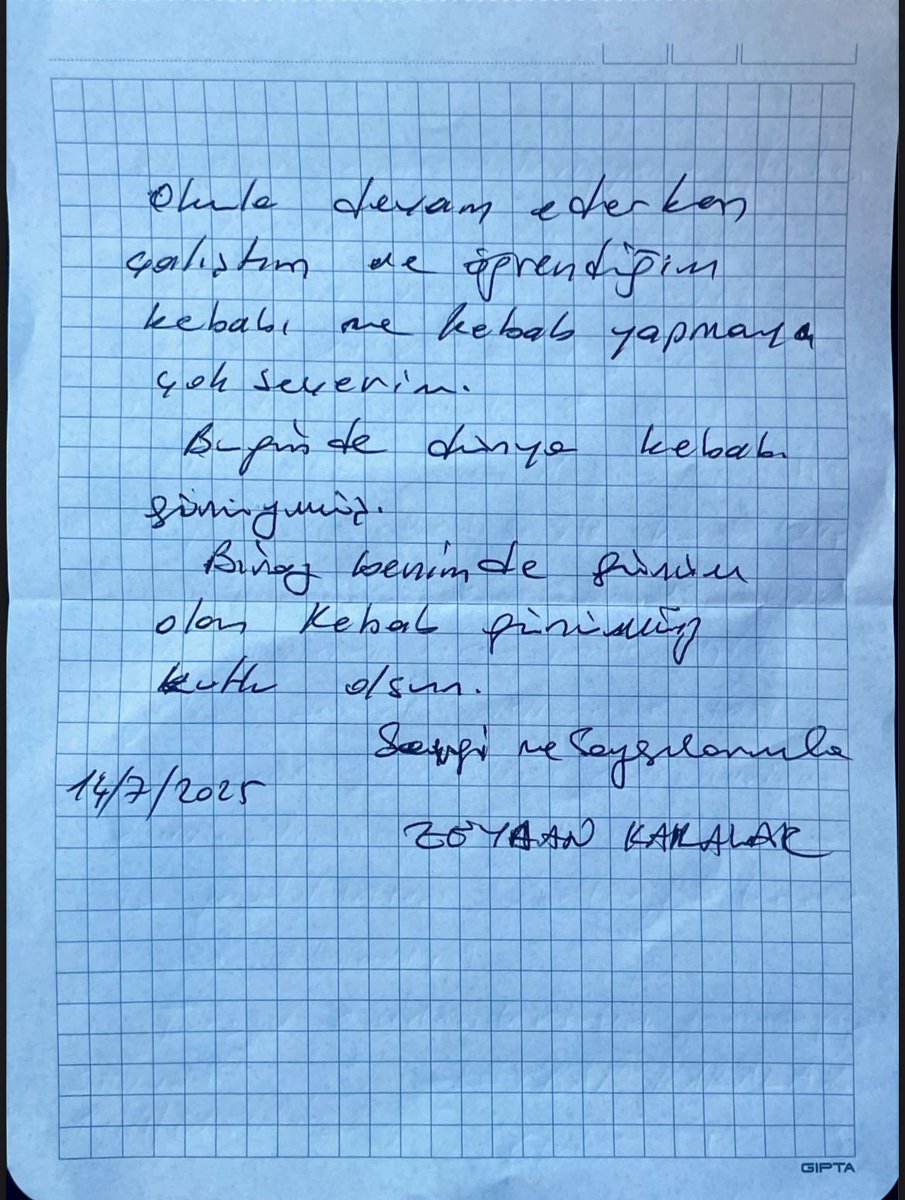 Okula devam ederken
çalıştım ve öğrendiğim
kebabı ve kebab yapmaya
çok severim.
Bugünde dünya kebab
günüymüş.
Biraz benimde günüm
olan Kebab gününüz
kutlu olsun.
Sevgi ve Saygılarımla
14/7/2025
ZEYDAN KARALAR
GIPTA